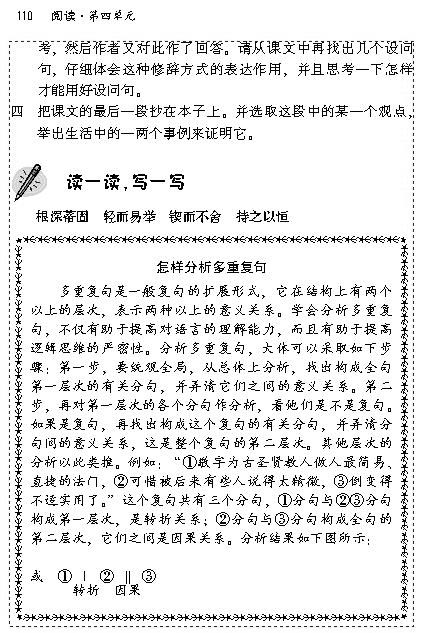 110 阅读·第四单元
考，然后作者又对此作了回答。请从课文中再找出几个设问
句，仔细体会这种修辞方式的表达作用，并且思考一下怎样
才能用好设问句。
四 把课文的最后一段抄在本子上。并选取这段中的某一个观点，
举出生活中的一两个事例来证明它。
读一读，写一写
根深蒂固 轻而易举 锲而不舍 持之以恒
怎样分析多重复句
多重复句是一般复句的扩展形式，它在结构上有两个
以上的层次，表示两种以上的意义关系。学会分析多重复
句，不仅有助于提高对语言的理解能力，而且有助于提高
逻辑思维的严密性。分析多重复句，大体可以采取如下步
骤：第一步，要统观全局，从总体上分析，找出构成全句
第一层次的有关分句，并弄清它们之间的意义关系。第二
步，再对第一层次的各个分句作分析，看他们是不是复句。
如果是复句，再找出构成这个复句的有关分句，并弄清分
句间的意义关系，这是整个复句的第二层次。其他层次的
分析以此类推。例如：“①敬字为古圣贤教人做人最简易、
直捷的法门，②可惜被后来有些人说得太精微，③倒变得
不适实用了。”这个复句共有三个分句，①分句与②③分句
构成第一层次，是转折关系；②分句与③分句构成全句的
第二层次，它们之间是因果关系。分析结果如下图所示：
或 ① | ② ‖ ③
转折 因果